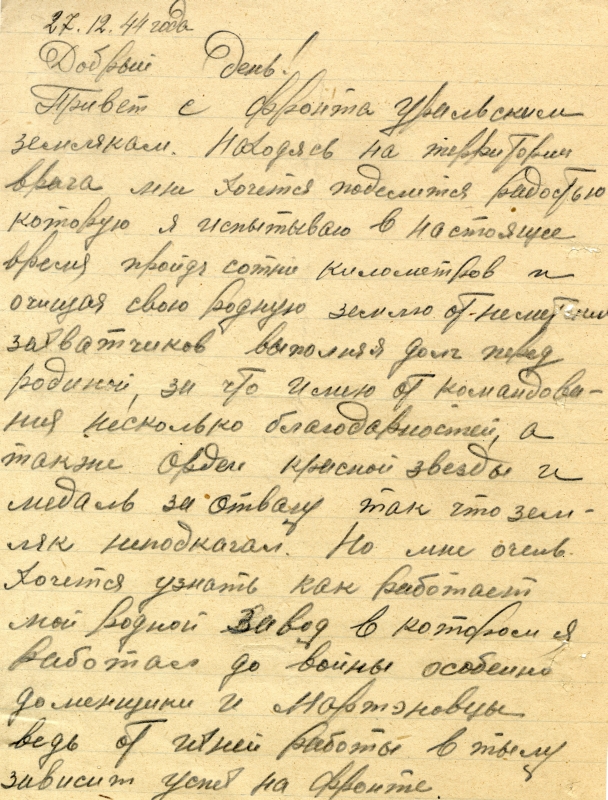 27.12.44 года
Добрый день!
Привет с фронта уральским
землякам. Находясь на територии
врага мне хочется поделится радостью
которую я испытываю в настоящее
время пройдя сотни километров и
очищая свою родную землю от немецких
захватчиков выполняя долг перед
родиной, за что имею от командова-
ния несколько благодарностей, а
также орден красной звезды и
медаль за отвагу так что зем-
ляк неподкачал. Но мне очень
хочется узнать как работает
мой родной завод в котором я
работал до войны особенно
доменщики и мартэновцы
ведь от ихней работы в тылу
зависит успех на фронте.